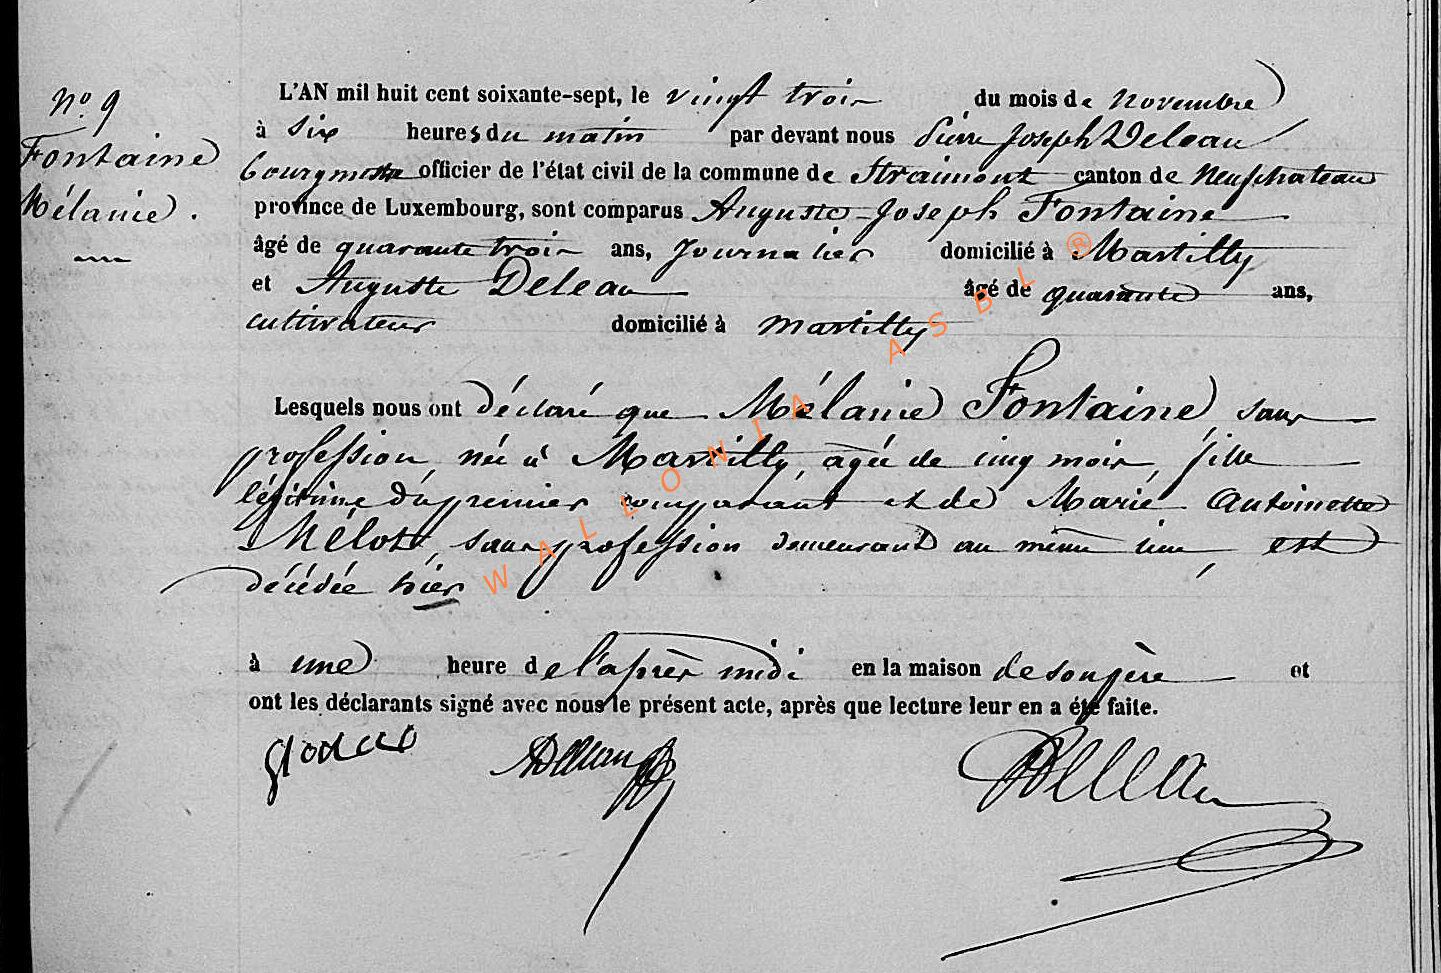 N.o 9
Fontaine
Mélanie.
L'AN mil huit cent soixante-sept, le vingt trois du mois de novembre
à six heures du matin par devant nous Pierre Joseph Deleau
bourgmestre officier de l'état civil de la commune de Straimont canton de Neufchateau
province de Luxembourg, sont comparus Auguste-Joseph Fontaine
âgé de quarante trois ans, Journalier domicilié à Martilly
et Auguste Deleau âgé de quarante ans,
cultivateur domicilié à Martilly
Lesquels nous ont déclaré que Mélanie Fontaine, sans
profession, née à Martilly, agée de cinq mois, fille
légitime du premier comparant et de Marie Antoinette
Mélote, sans profession demeurant au même lieu est
décédée hier
à une heure de l'après midi en la maison de son père et
ont les déclarants signé avec nous le présent acte, après que lecture leur en a été faite.
ADeleau Deleau
WALLONIA ASBL ®